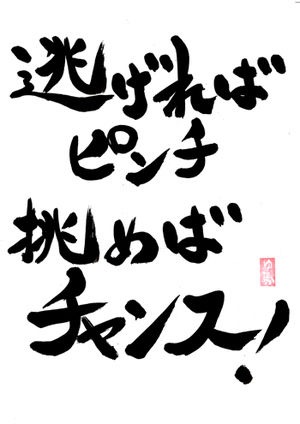 逃げれば
ピンチ
挑めば
チャンス!